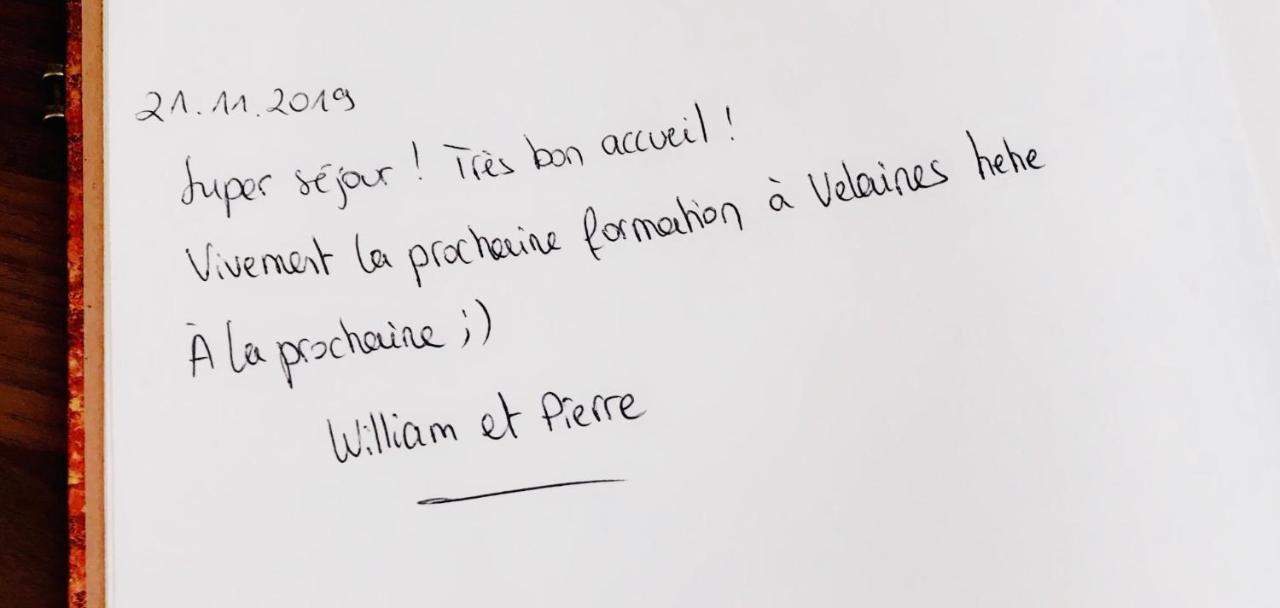 21.11.2019
Super séjour ! Très bon accueil !
Vivement la prochaine formation à Velaines hehe
À la prochaine ;)
William et Pierre